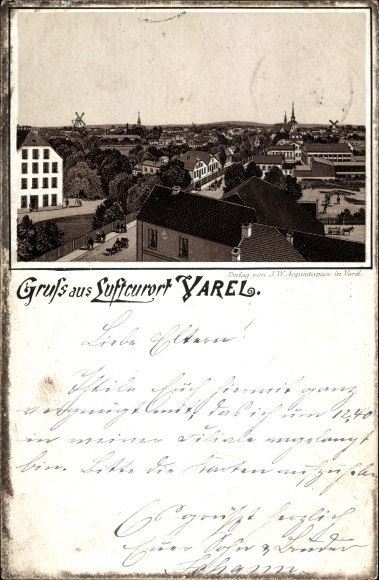 Verlag von J. W. Acquistapace in Varel.
Gruss aus Luftcurort VAREL.
Liebe Eltern!
Theile Euch hiermit ganz
vergnügt mit, das ich um 12,40
in meiner Filiale angelangt
bin. Bitte die Karten aufzuheben
Es grüßt herzlich
Euer Sohn & Bruder
Johann